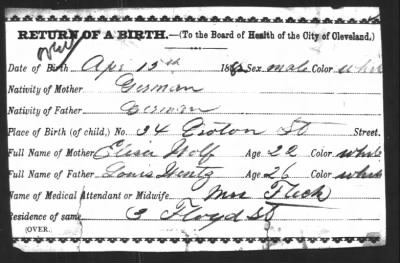 RETURN OF A BIRTH.—(To the Board of Health of the City of Cleveland.)
over
Date of Birth Apr 15th 188 Sex male Color white
Nativity of Mother German
Nativity of Father German
Place of Birth (of child,) No. 24 Croton St Street.
Full Name of Mother Elisa Wolf Age 22 Color white
Full Name of Father Louis Wentz Age 26 Color white
Name of Medical Attendant or Midwife, Mrs
Residence of same 3 Floyd St
(OVER.)